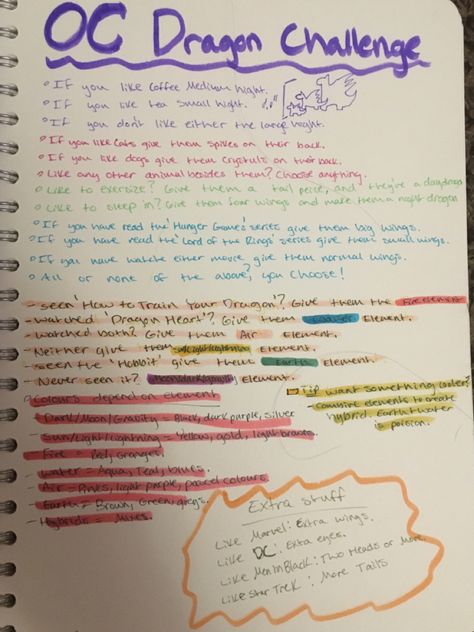 OC Dragon Challenge
If you like Coffee Medium hight.
If you like tea Small hight.
If you don't like either the large height.
If you like Cats give them spikes on their back.
If you like dogs give them crystals on their back.
Like any other animal besides them? Choose anything.
Like to exersize? Give them a tail peice, and they're a day dragon
Like to sleep in? Give them four wings and make them a night dragon
If you have read the 'Hunger Games' series give them big wings.
If you have read the 'Lord of the Rings' series give them small wings.
If you have watche either movie give them normal wings.
All or none of the above? you choose!
- seen 'How to Train Your Dragon'? Give them the Fire element
- watched 'Dragon Heart'? Give them Water Element.
- watched both? Give them Air Element.
- Neither give them sun/light/lightning Element.
- seen the 'Hobbit' give them Earth Element
- Never seen it? Moon/dark/gravity Element.
- Colours depend on element
- Dark/Moon/Gravity = Black, dark purple, silver
- Sun/Light/Lightning - Yellow, gold, light browns
- Fire = Red, Oranges.
- Water = Aqua, Teal, blues.
- Air = Pinks, light purple, pastel colours
- Earth = Brown, Green, greys.
- Hybrids = Mixes.
Tip want something cooler?
combine elements to create
hybrid. Earth + water
is poision.
Extra stuff
Like Marvel: Extra wings.
Like DC: Exta eyes.
Like Men in Black: Two Heads or More.
Like Star Trek: More Tails